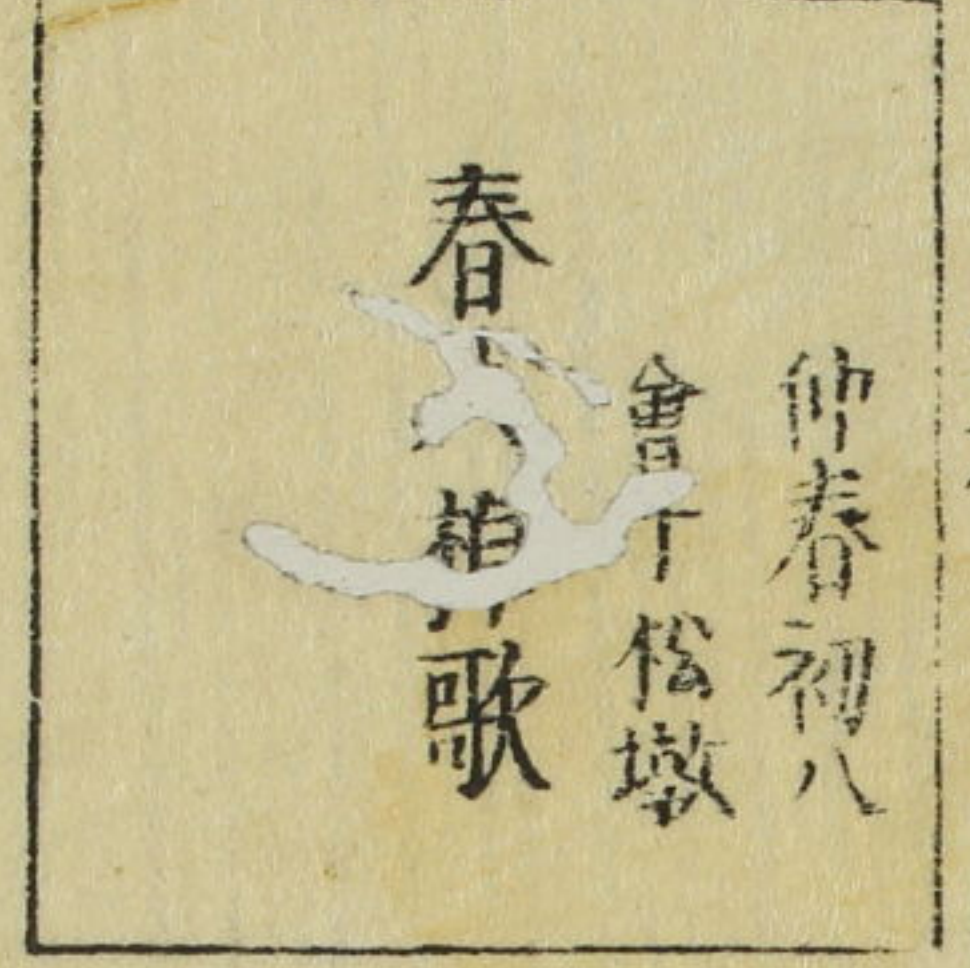 仲春初八
會于松墩
春歌